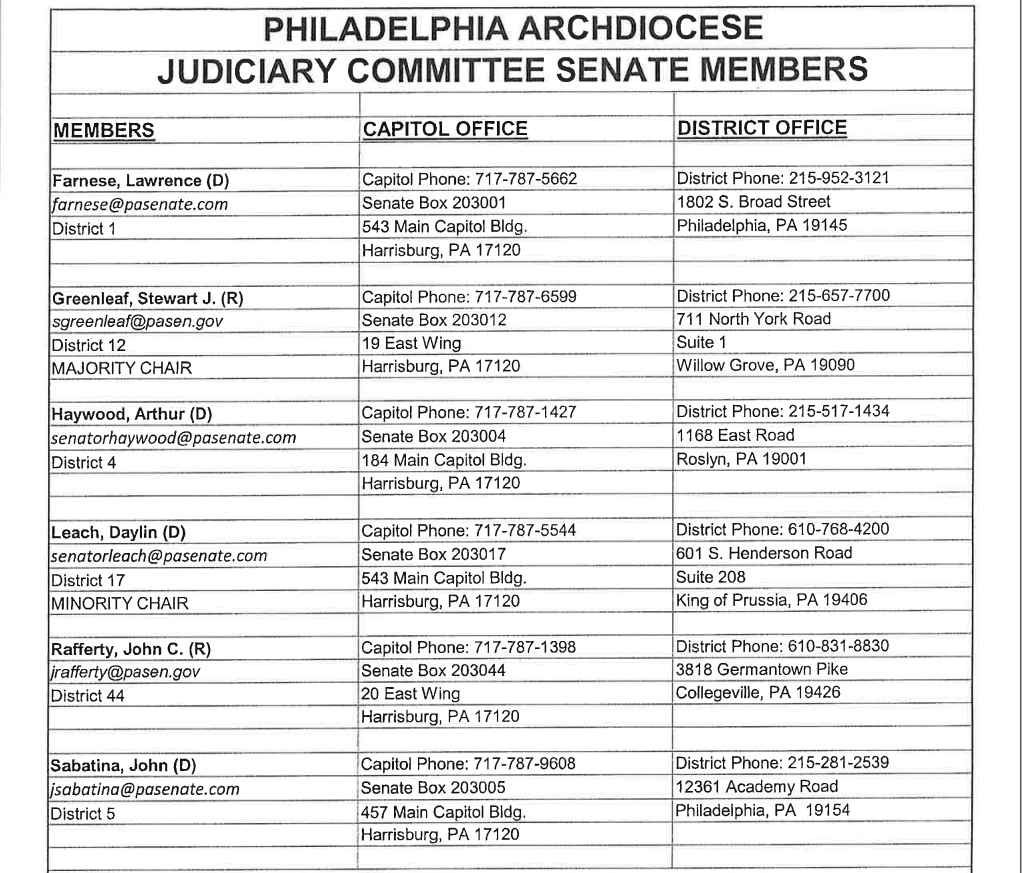 PHILADELPHIA ARCHDIOCESE
JUDICIARY COMMITTEE SENATE MEMBERS
MEMBERS CAPITOL OFFICE DISTRICT OFFICE
Farnese, Lawrence (D) Capitol Phone: 717-787-5662 District Phone: 215-952-3121
farnese@pasenate.com Senate Box 203001 1802 S. Broad Street
District 1 543 Main Capitol Bldg. Philadelphia, PA 19145
Harrisburg, PA 17120
Greenleaf, Stewart J. (R) Capitol Phone: 717-787-6599 District Phone: 215-657-7700
sgreenleaf@pasen.gov Senate Box 203012 711 North York Road
District 12 19 East Wing Suite 1
MAJORITY CHAIR Harrisburg, PA 17120 Willow Grove, PA 19090
Haywood, Arthur (D) Capitol Phone: 717-787-1427 District Phone: 215-517-1434
senatorhaywood@pasenate.com Senate Box 203004 1168 East Road
District 4 184 Main Capitol Bldg. Roslyn, PA 19001
Harrisburg, PA 17120
Leach, Daylin (D) Capitol Phone: 717-787-5544 District Phone: 610-768-4200
senatorleach@pasenate.com Senate Box 203017 601 S. Henderson Road
District 17 543 Main Capitol Bldg. Suite 208
MINORITY CHAIR Harrisburg, PA 17120 King of Prussia, PA 19406
Rafferty, John C. (R) Capitol Phone: 717-787-1398 District Phone: 610-831-8830
jrafferty@pasen.gov Senate Box 203044 3818 Germantown Pike
District 44 20 East Wing Collegeville, PA 19426
Harrisburg, PA 17120
Sabatina, John (D) Capitol Phone: 717-787-9608 District Phone: 215-281-2539
jsabatina@pasenate.com Senate Box 203005 12361 Academy Road
District 5 457 Main Capitol Bldg. Philadelphia, PA 19154
Harrisburg, PA 17120